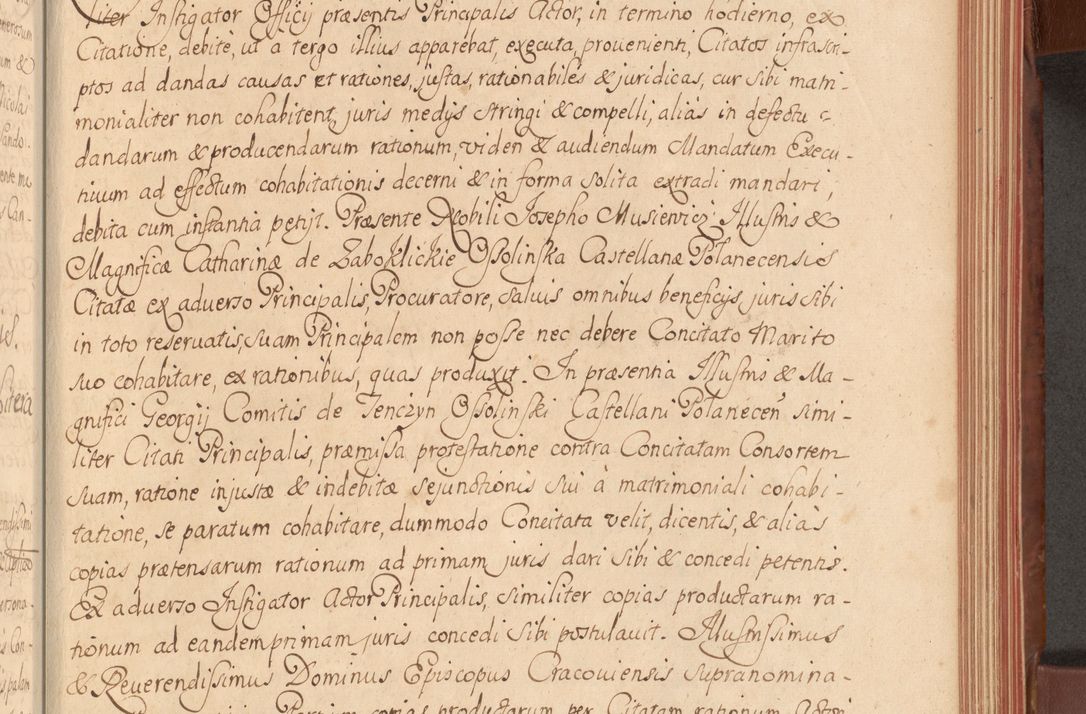 liter Instigator Officij præsentis Principalis Actor, in termino hodierno, ex
Citatione, debite, ut à tergo illius apparebat, executa, prouenienti, Citatos infrascri-
ptos ad dandas causas et rationes, justas, rationabiles & juridicas, cur sibi matri-
monialiter non cohabitent, juris medijs stringi & compelli, alias in defectu
dandarum & producendarum rationum, viden & audiendum Mandatum Execu-
tiuum ad effectum cohabitationis decerni & in forma solita extradi mandari,
debita cum instantia petijt. Præsente Nobili Josepho Musiewicz Illustris &
Magnificæ Catharinæ de Zaboklickie Ossolinska Castellanæ Połanecensis
Citatæ ex aduerso Principalis, Procuratore, saluis omnibus beneficijs juris sibi
in toto reseruatis, suam Principalem non posse nec debere Concitato Marito
suo cohabitare, ex rationibus, quas produxit. In præsentia Illustris & Ma-
gnifici Georgij Comitis de Tenczyn Ossolinski Castellani Połanecen simi-
liter Citati Principalis, præmissa protestatione contra Concitatam Consortem
suam, ratione injustæ & indebitæ sejunctionis sui à matrimoniali cohabi-
tatione, se paratum cohabitare, dummodo Concitata velit, dicentis, & alias
copias prætensarum rationum ad primam juris dari sibi & concedi petentis.
Ex aduerso Instigator Actor Principalis, similiter copias productarum ra-
tionum ad eandem primam juris concedi sibi postulauit. Illustrissimus
& Reuerendissimus Dominus Episcopus Cracouiensis supranomina-
copias productarum per Citatam rationum Actori